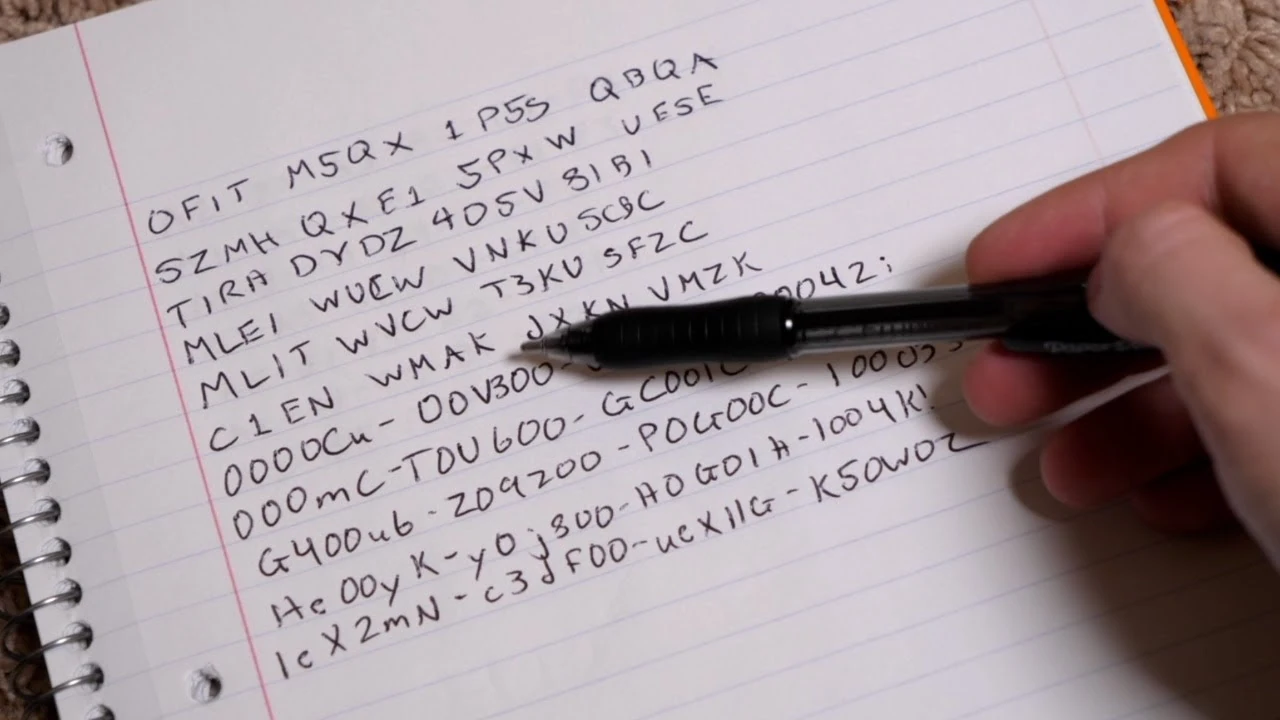 OFIT M5QX 1P5S QBQA
SZMH QXE1 5PXW UESE
TIRA DYDZ 4D5V 81B1
MLEI WUCW VNKU 5C9C
MLIT WVCW T3KU SFZC
C1EN WMAK JXKN VMZK
0000Cu-00V300-
000mC-T0U600-GC001C
G400ub-Z09200-P0G00C-
HC00yK-y0j800-H0G01H-1004K!
1cX2mN-c3dF00-ucX11G-K50W0Z